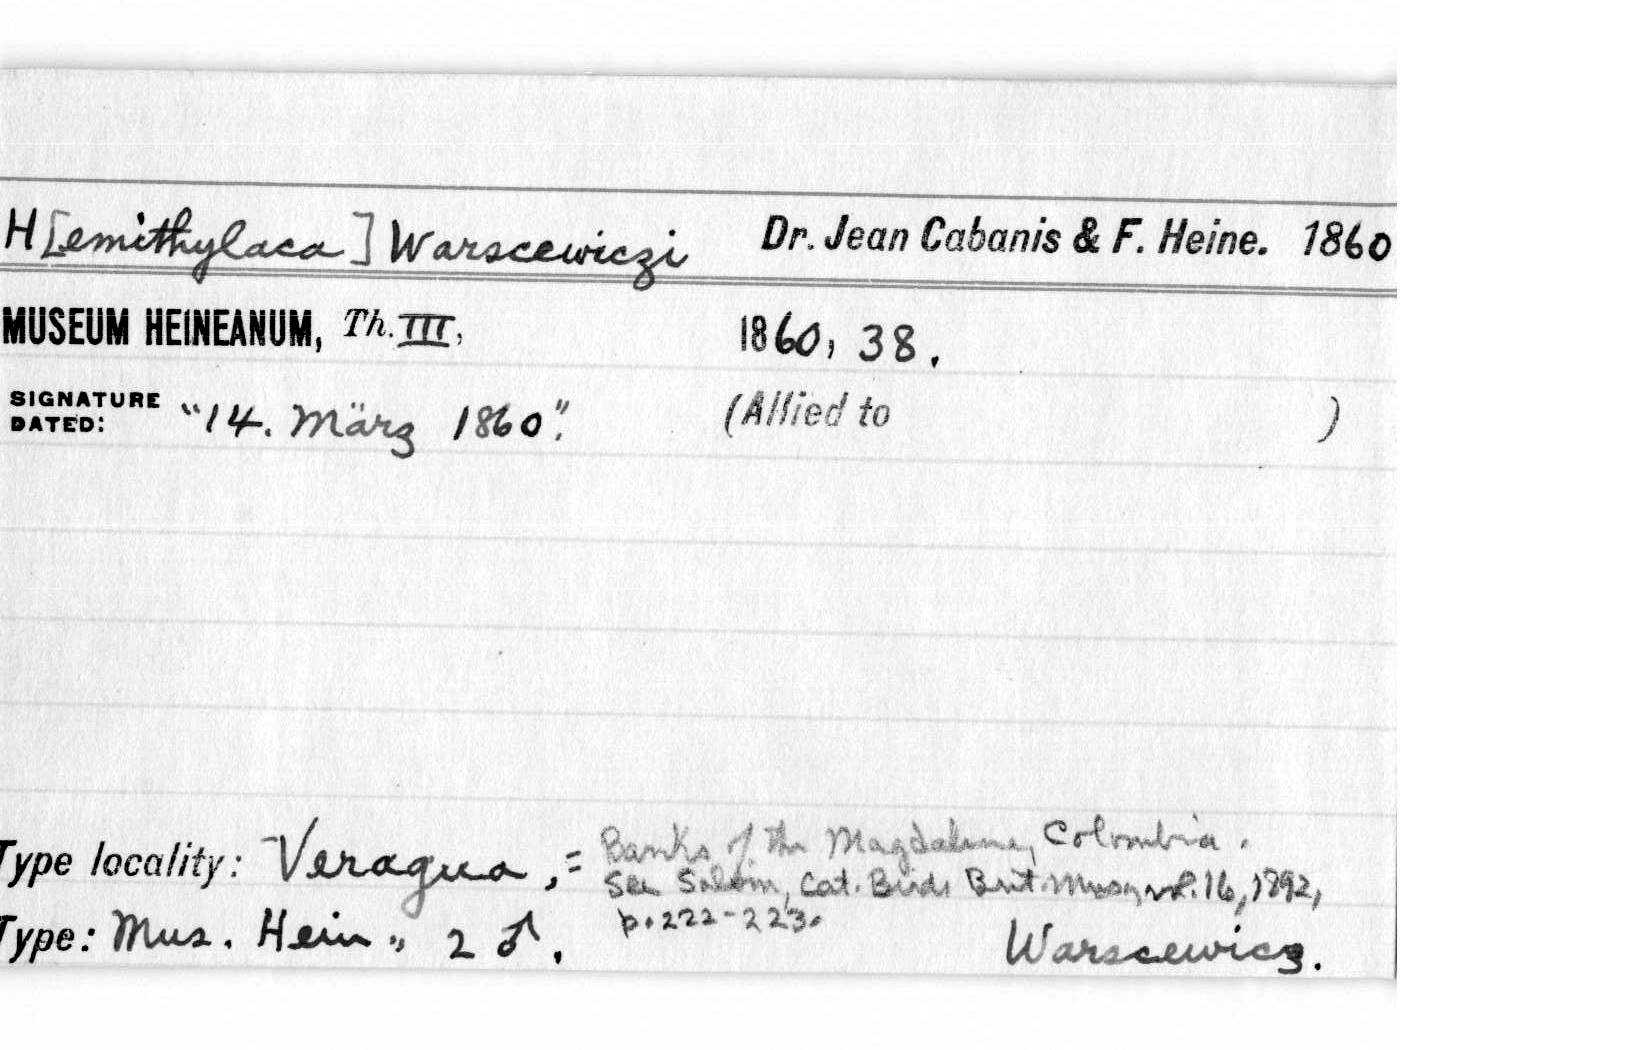 H[emithylaca] Warscewiczi Dr. Jean Cabanis & F. Heine. 1860
MUSEUM HEINEANUM, Th. III, 1860, 38.
SIGNATURE DATED: "14. März 1860". (Allied to )
Type locality: Veragua, = Banks of the Magdalena, Colombia.
See Salvin, Cat. Birds Brit. Mus., vol. 16, 1892,
p. 222-223.
Type: Mus. Hein., 2 ♂. Warscewicz.